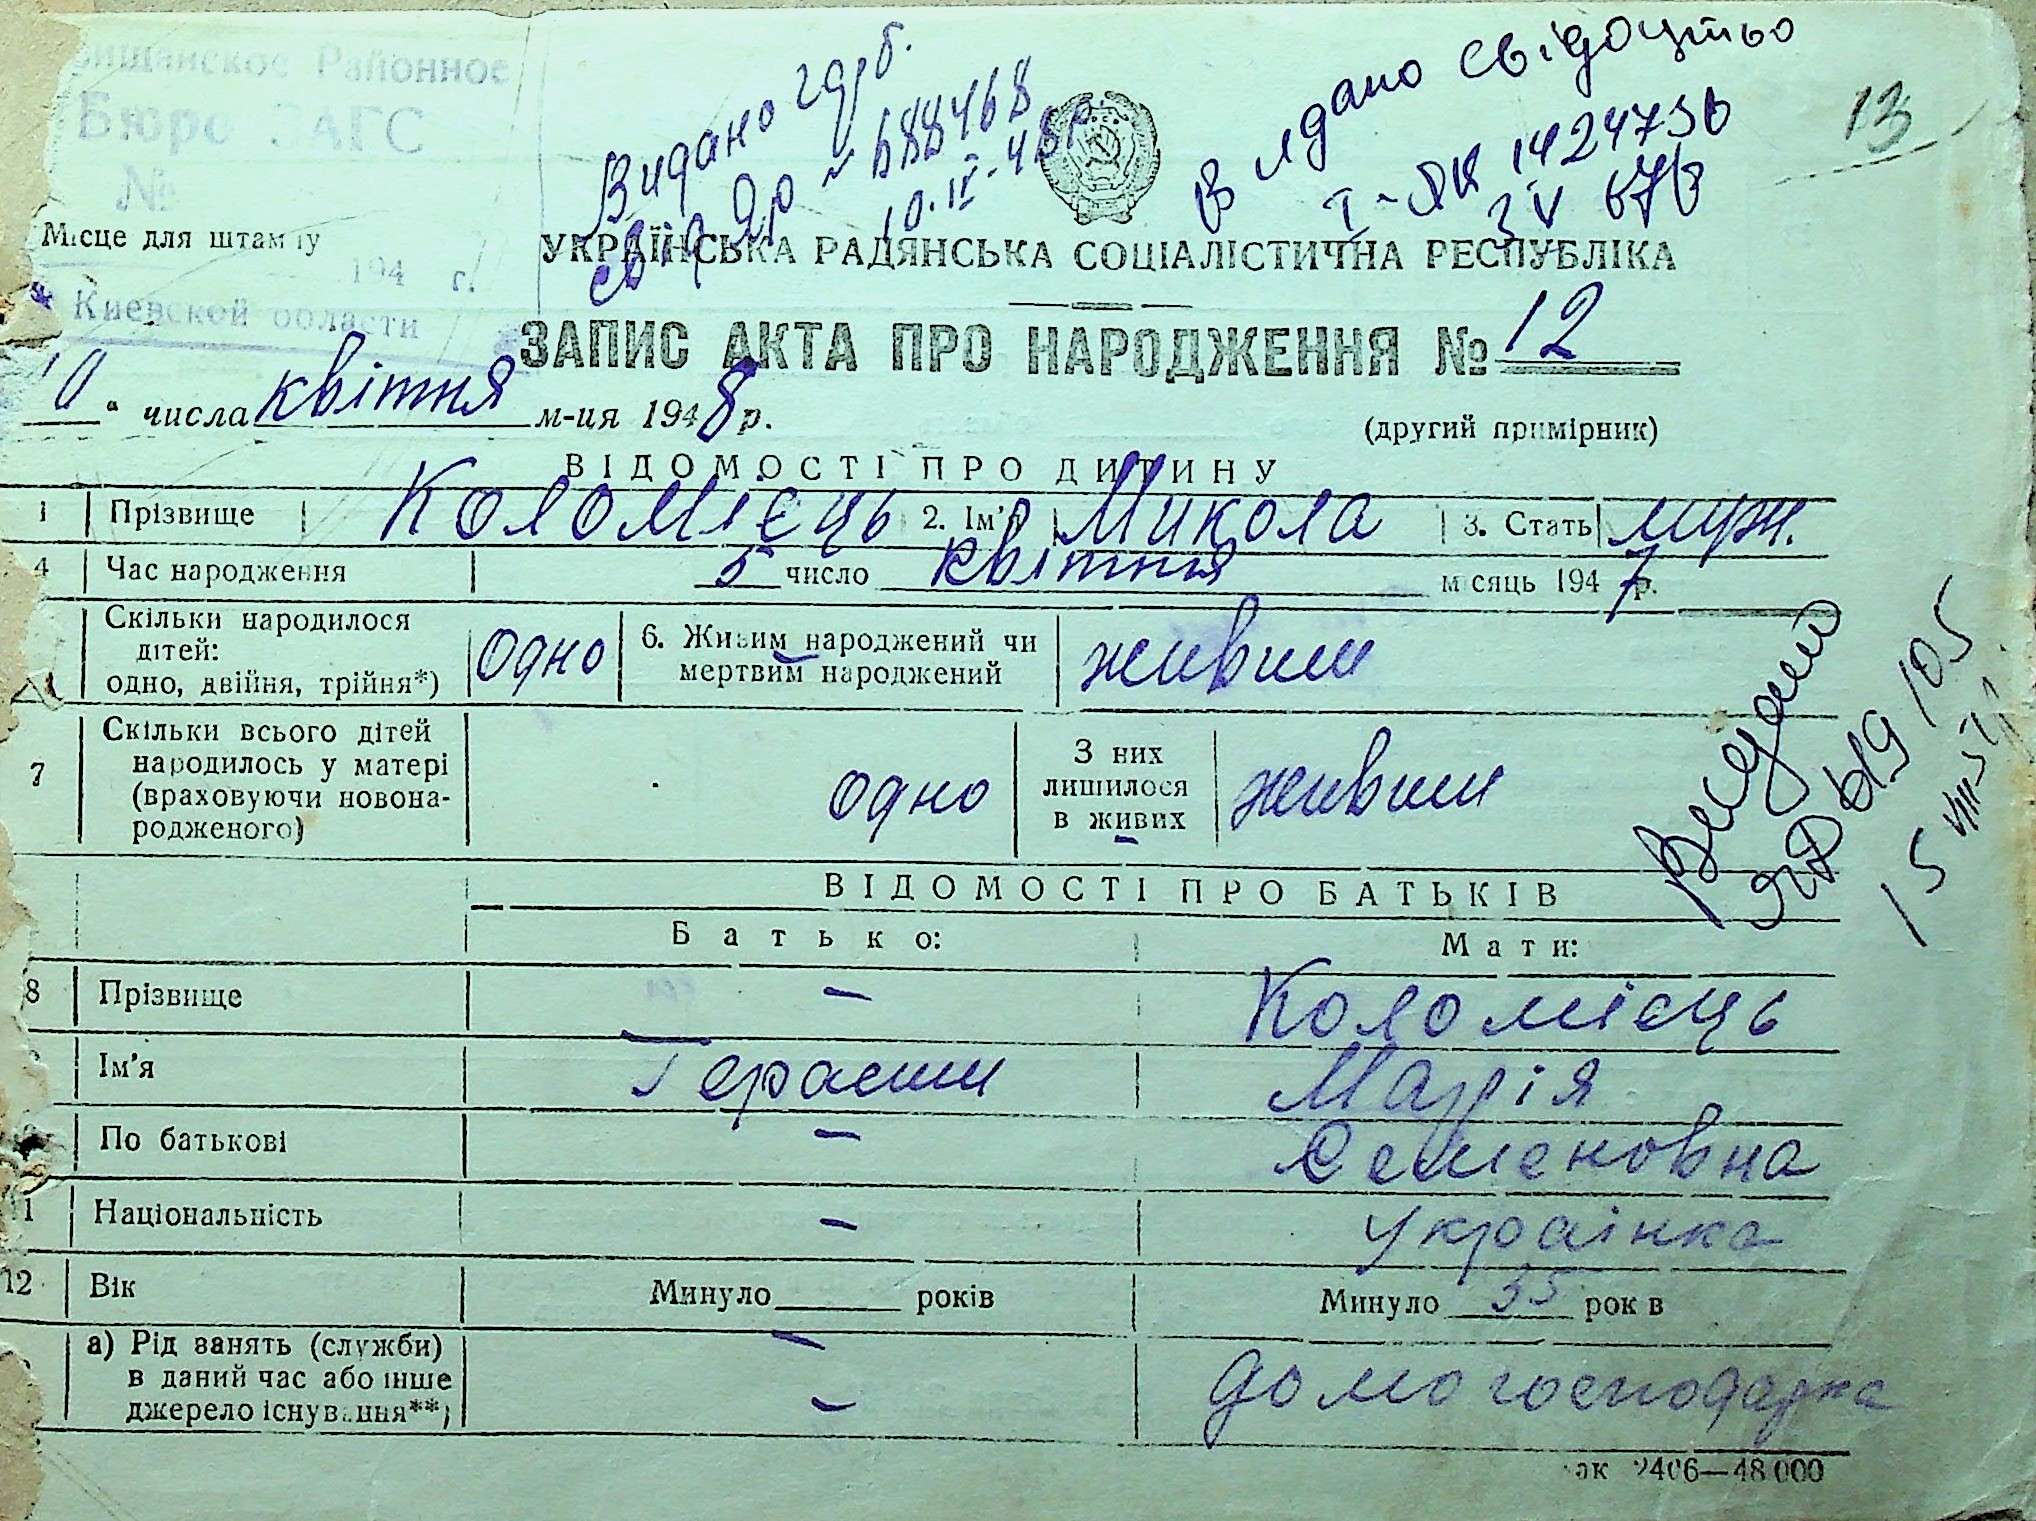 Районное
Бюро ЗАГС
№
Місце для штампу
194 г.
Киевской области
Видано
№ 688468
10. IV - 48р.
Видано свідоцтво
I-ЯК 1424736
3 V 67р
13
УКРАЇНСЬКА РАДЯНСЬКА СОЦІАЛІСТИЧНА РЕСПУБЛІКА
ЗАПИС АКТА ПРО НАРОДЖЕННЯ № 12
10 " числа квітня м-ця 1948 р.
(другий примірник)
ВІДОМОСТІ ПРО ДИТИНУ
1 Прізвище Коломієць 2. Ім'я Микола 3. Стать муж.
4 Час народження 5 число квітня місяць 1947 р.
Скільки народилося
дітей:
одно, двійня, трійня*) одно
6. Живим народжений чи
мертвим народжений живим
7 Скільки всього дітей
народилось у матері
(враховуючи новона-
родженого) одно
З них
лишилося
в живих живим
105
15
ВІДОМОСТІ ПРО БАТЬКІВ
Батько: Мати:
8 Прізвище – Коломієць
Ім'я Герасим Марія
По батькові – Семеновна
11 Національність – Украінка
12 Вік Минуло років Минуло 35 років
–
а) Рід занять (служби)
в даний час або інше
джерело існування**) – домогосподарка
2406—48 000